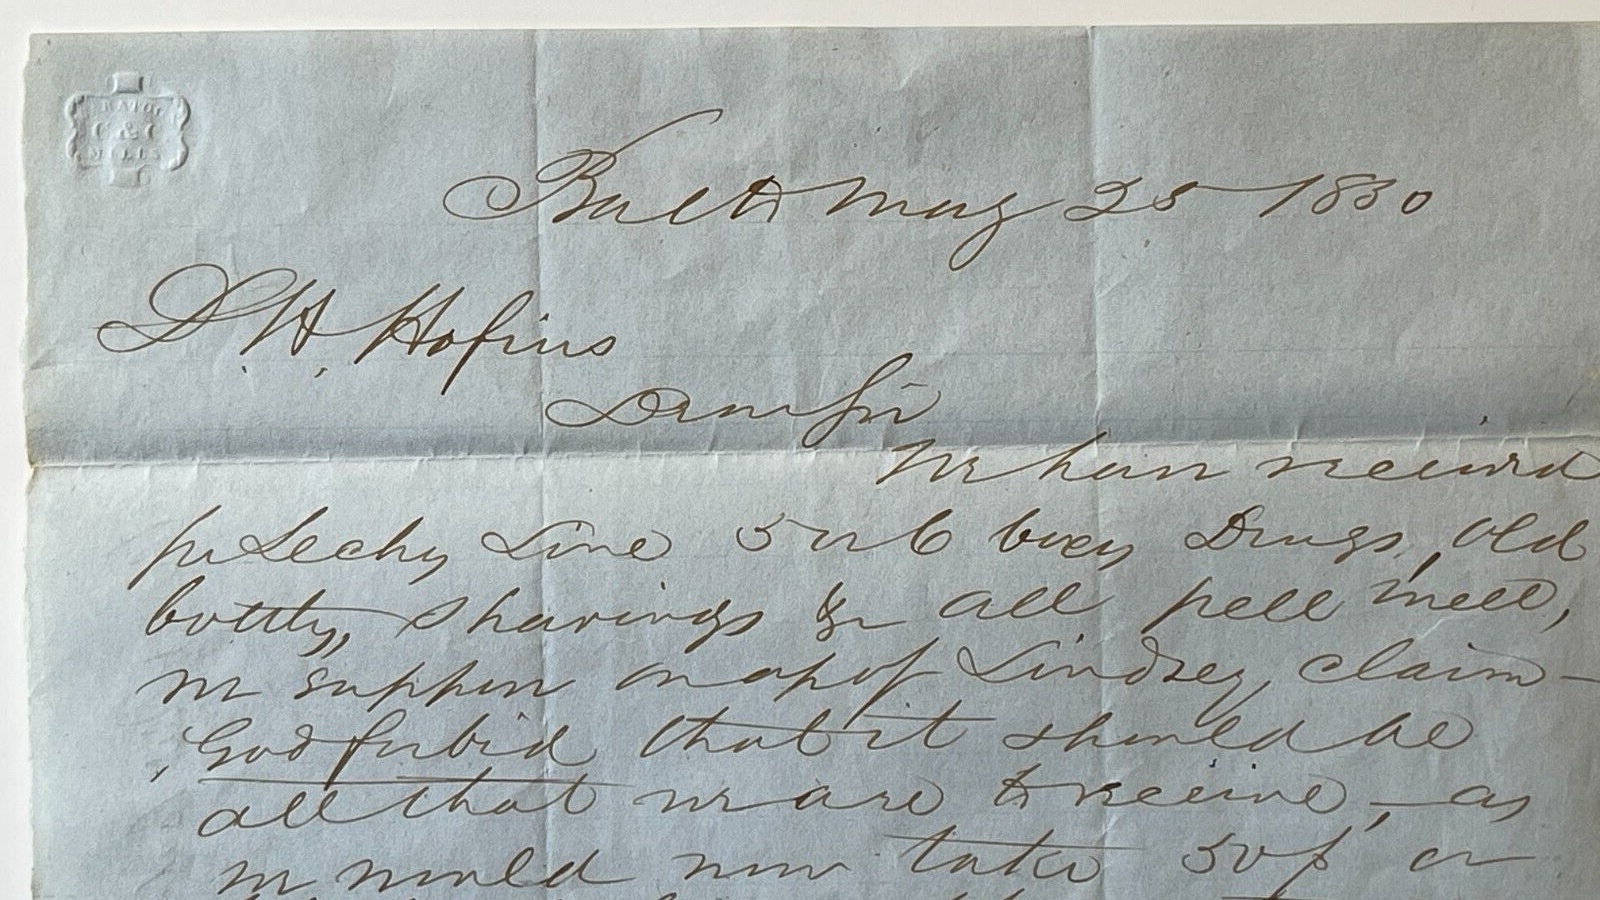 & C
MILLS
Balto May 25 1850
D. H. Hofius
Dear Sir
We have received
pr Leechy Line 5 or 6 boxes Drugs, Old
bottles, shavings &c all pell mell,
we suppose on a/c of Lindsey claim —
God forbid that it should be
all that we are to receive, — as
we would now take 50 or